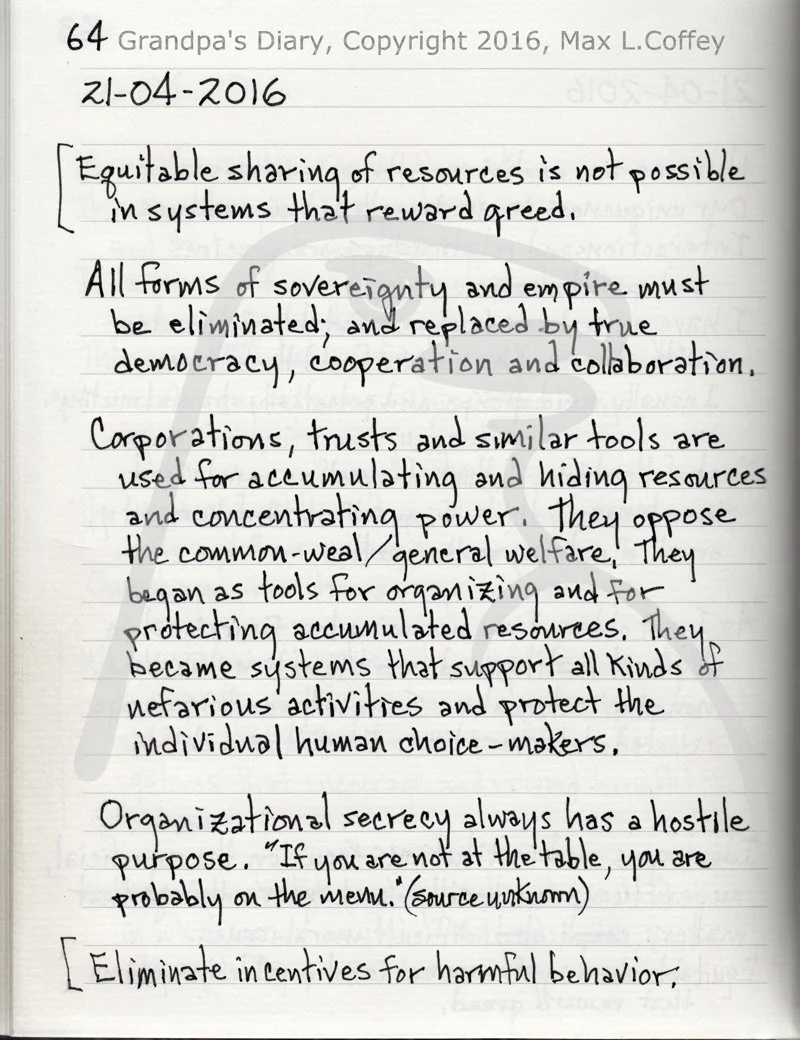 64 Grandpa's Diary, Copyright 2016, Max L.Coffey
21-04-2016
Equitable sharing of resources is not possible
in systems that reward greed.
All forms of sovereignty and empire must
be eliminated; and replaced by true
democracy, cooperation and collaboration.
Corporations, trusts and similar tools are
used for accumulating and hiding resources
and concentrating power. They oppose
the common-weal/general welfare. They
began as tools for organizing and for
protecting accumulated resources. They
became systems that support all kinds of
nefarious activities and protect the
individual human choice-makers.
Organizational secrecy always has a hostile
purpose. "If you are not at the table, you are
probably on the menu." (source unknown)
Eliminate incentives for harmful behavior.